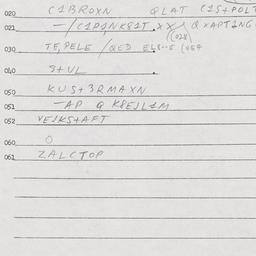 020 C1BROXN QLAT C1S+POLT
021 —/C1P1NK81T.XX/QXAPT1NG
(028)
030 TE,PELE /QED (054
040 S+UL .
050 KUS+3RMAXN
051 —AP Q K8EJL1M
052 VEJKS+AFT
060 O
061 ZALCTOP